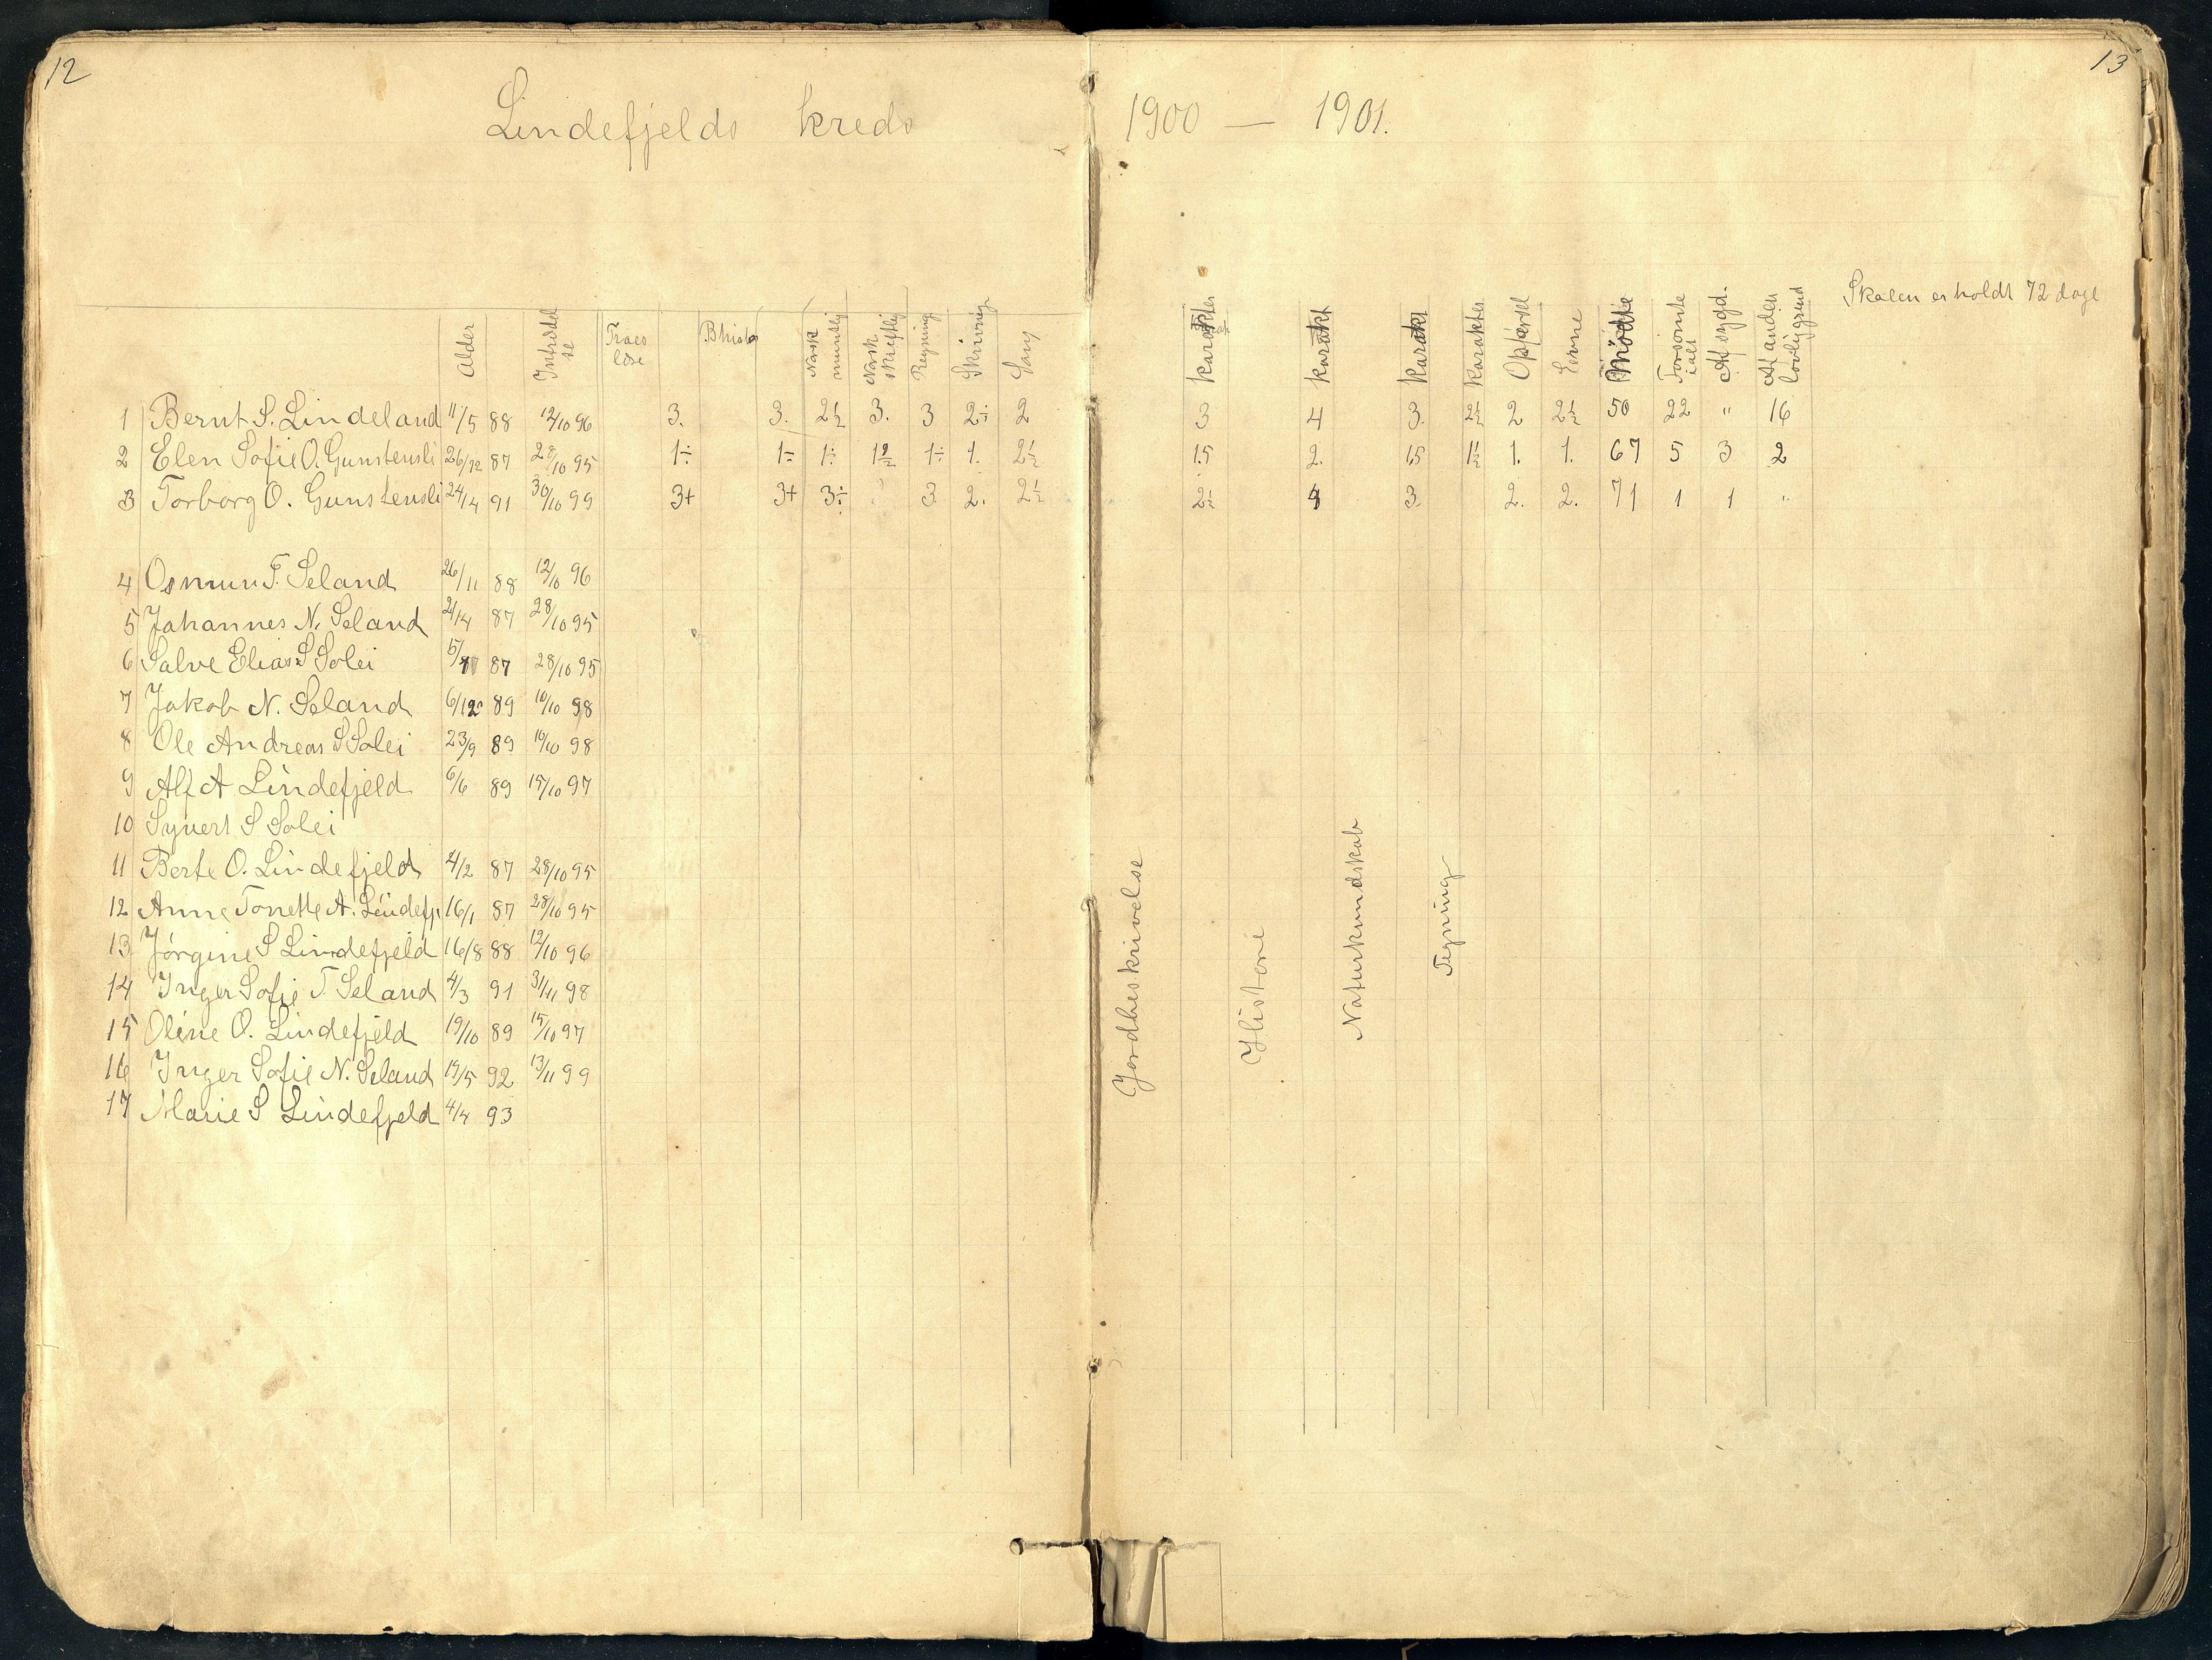 12
13
Lindefjelds kreds
1900 — 1901.
Skolen er holdt 72 dage
Alder Indtrædelse Troeslære Bhisto Norsk mundtlig Norsk skriftlig Regning Skrivning Sang karakter karakt karakt karakter Opførsel Evne Mødte Forsømte ialt Af sygd. Af anden lovlig grund
1 Bernt S. Lindeland 11/5 88 12/10 96 3. 3. 2½ 3. 3 2÷ 2 3 4 3. 2½ 2 2½ 50 22 " 16
2 Elen Sofie O. Gunstensli 26/12 87 28/10 95 1÷ 1÷ 1÷ 1½ 1÷ 1. 2½ 1.5 2. 1.5 1½ 1. 1. 67 5 3 2
3 Torborg O. Gunstensli 24/4 91 30/10 99 3+ 3+ 3÷ 3 2. 2½ 2½ 4 3. 2. 2. 71 1 1 "
4 Osmun T. Seland 26/11 88 12/10 96
5 Johannes N. Seland 21/4 87 28/10 95
6 Salve Elias S Solei 87 28/10 95
7 Jakob N. Seland 6/12 89 10/10 98
8 Ole Andreas S Solei 23/9 89 10/10 98
9 Alf A Lindefjeld 6/6 89 15/10 97
10 Syvert S Solei
11 Berte O. Lindefjeld 4/2 87 28/10 95
12 Anne Tonette A. Lindefj. 16/1 87 28/10 95
13 Jørgine S Lindefjeld 16/8 88 12/10 96
14 Inger Sofie T. Seland 4/3 91 31/11 98
15 Oline O. Lindefjeld 19/10 89 15/10 97
16 Inger Sofie N. Seland 19/5 92 13/11 99
17 Marie S Lindefjeld 4/4 93
Jordbeskrivelse
Historie
Naturkundskab
Tegning